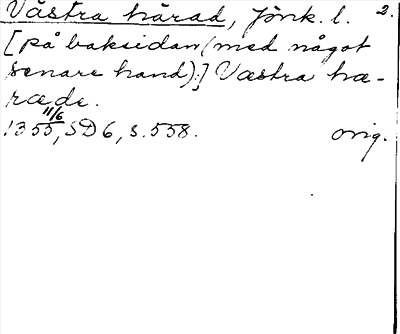 Västra härad, Jönk. l. 2.
[på baksidan (med något
senare hand):] Væstra hæ-
ræde.
1355 11/6, SD 6, s. 558. orig.